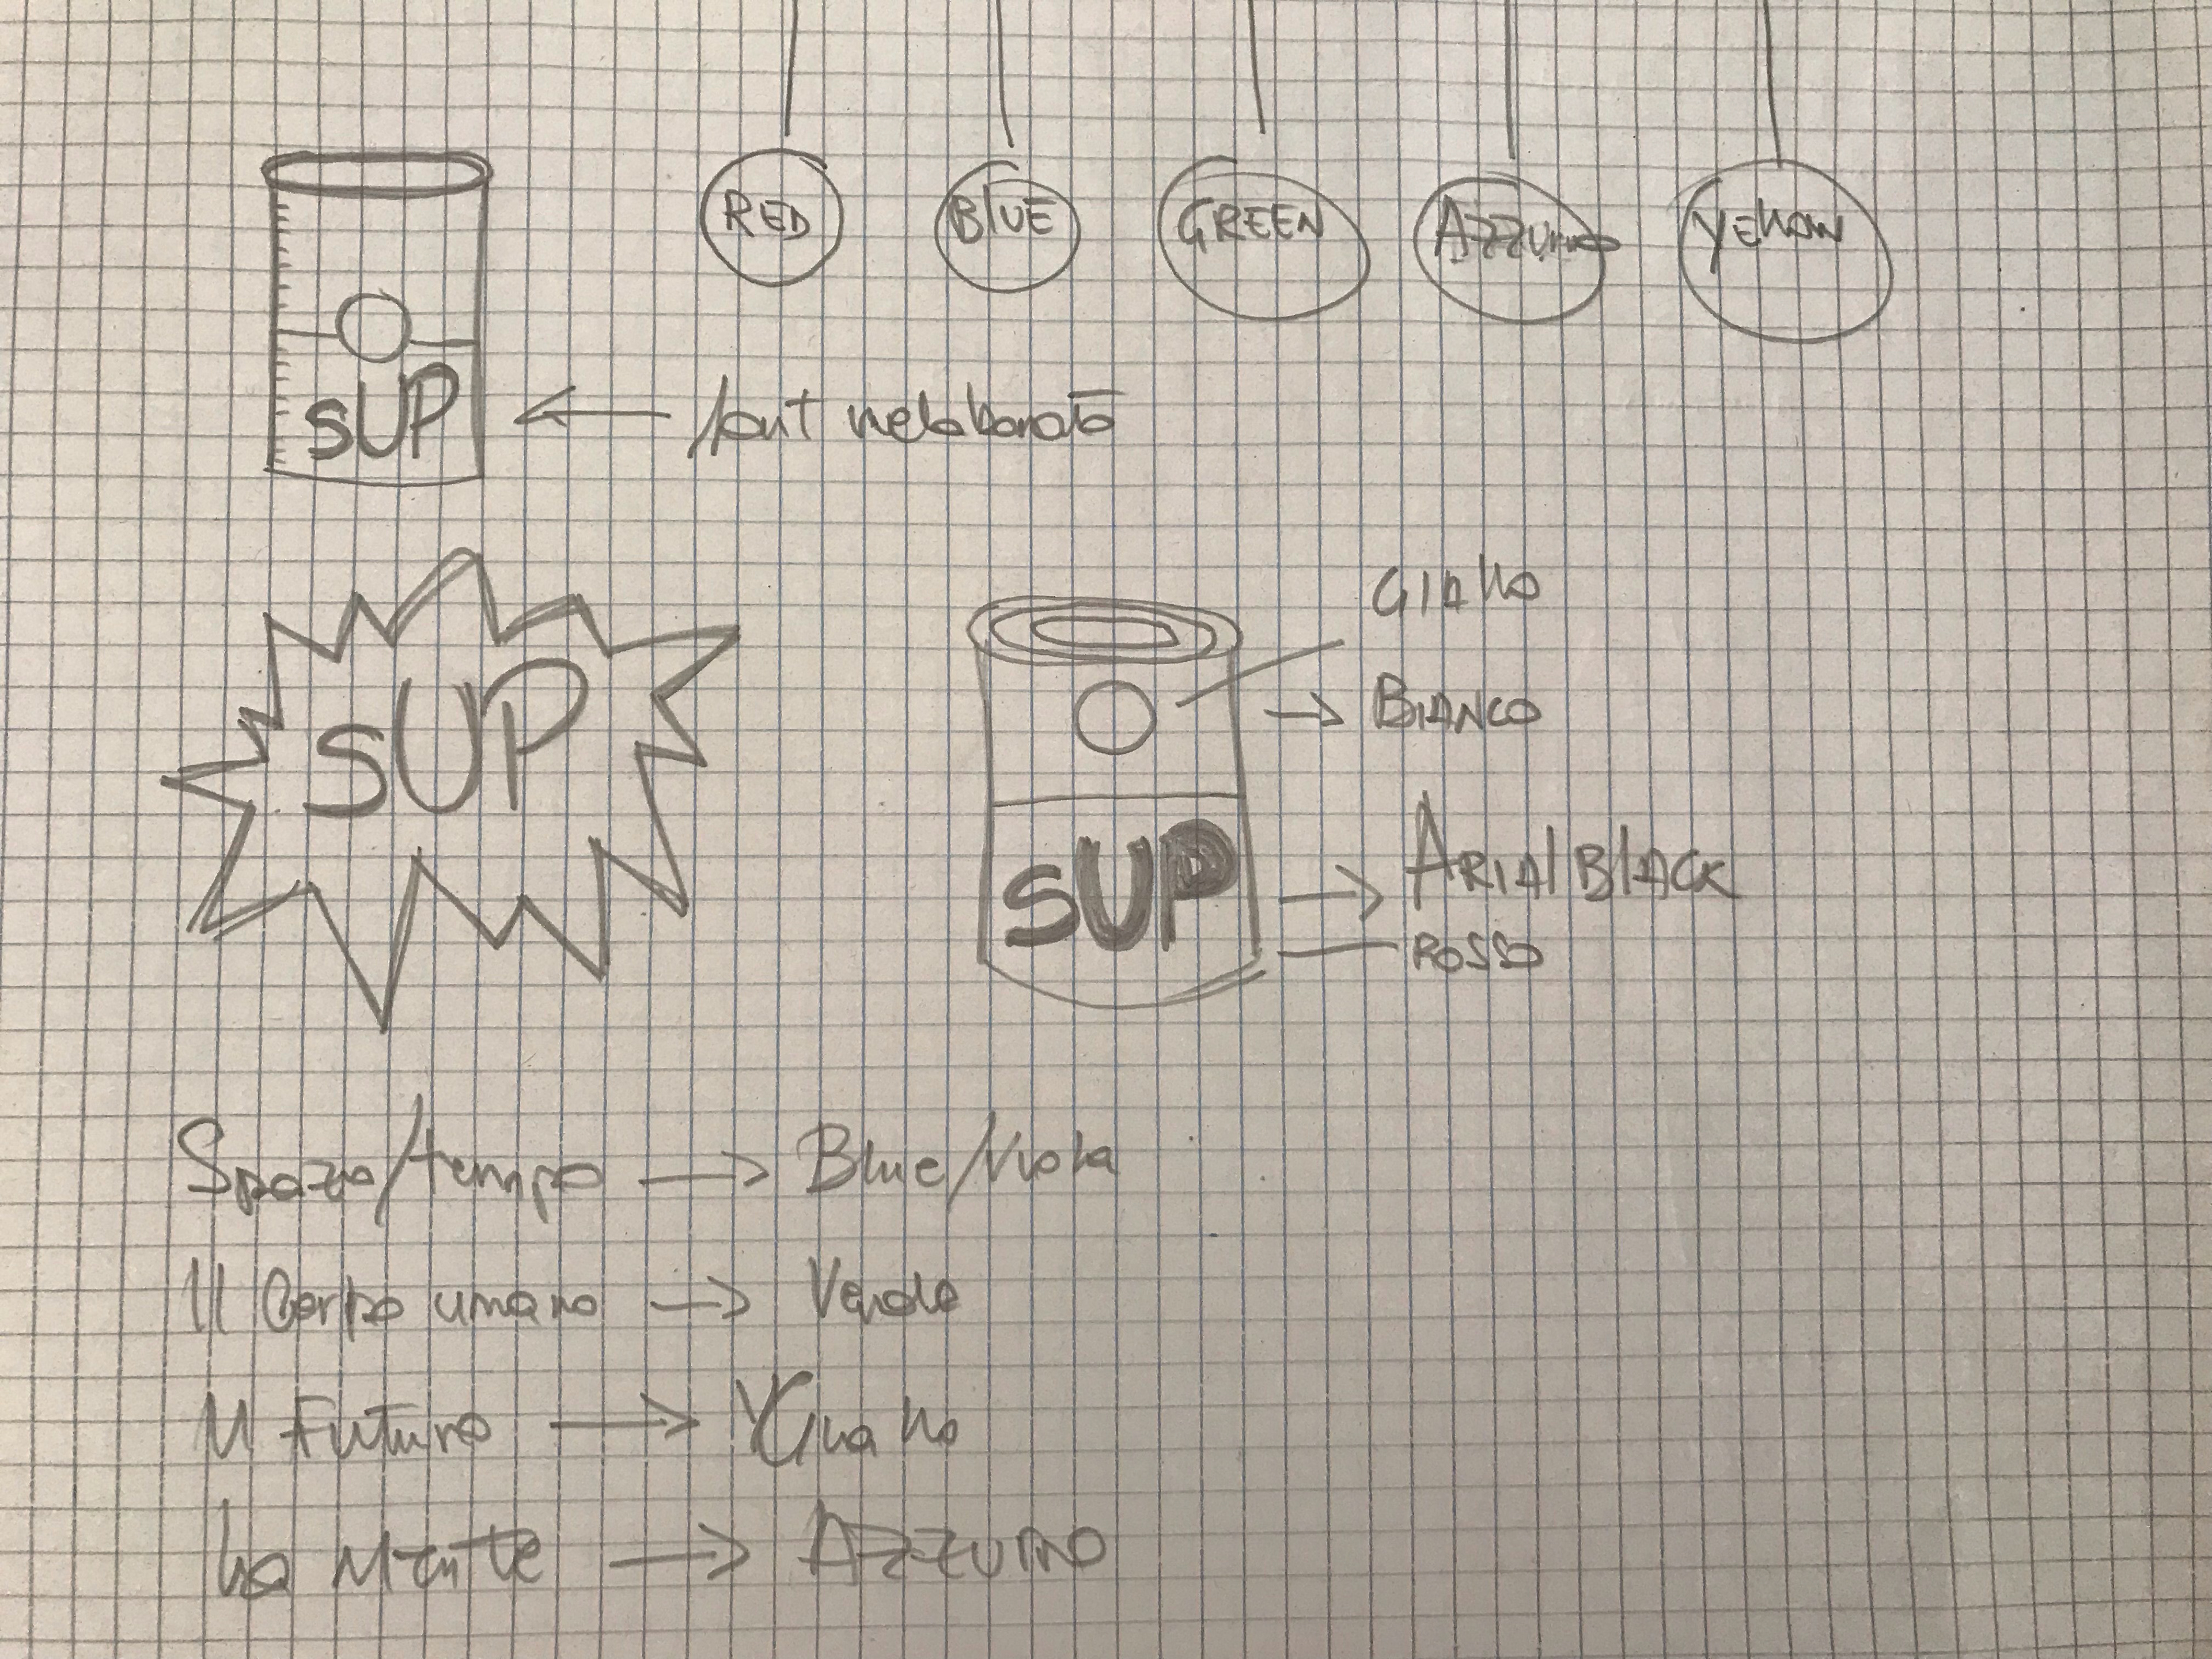 RED BLUE GREEN AZZURRO YELLOW
SUP
font rielaborato
SUP
GIALLO
BIANCO
SUP
ARIAL BLACK
ROSSO
Spazio/tempo → Blue/Viola
Il Corpo umano → Verde
Il Futuro → Giallo
La Mente → AZZURRO